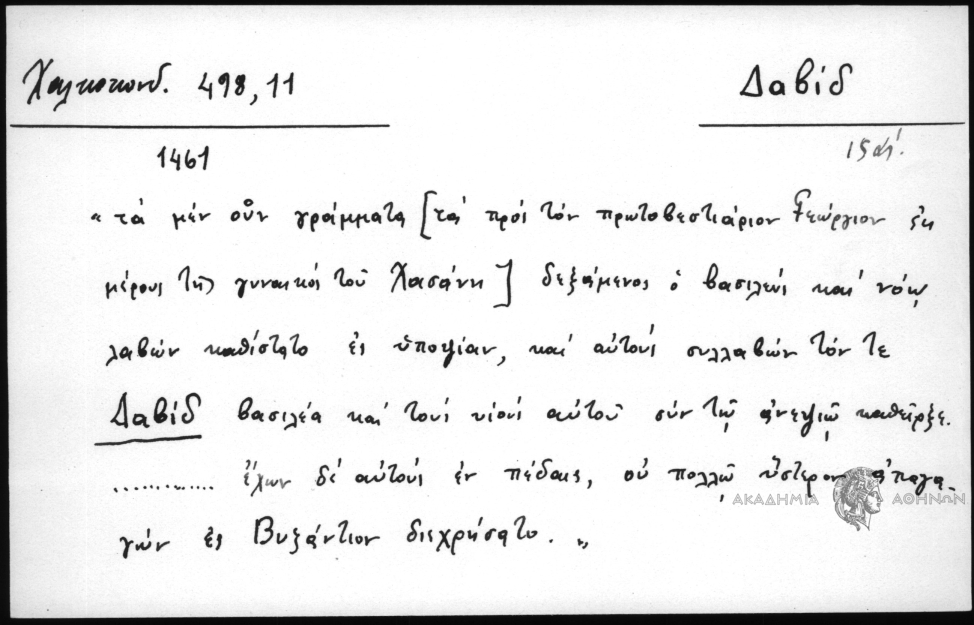 Χαλκοκονδ. 498, 11
Δαβίδ
1461
15 αι.
« τὰ μὲν οὖν γράμματα [τὰ πρὸς τὸν πρωτοβεστιάριον Γεώργιον ἐκ
μέρους τῆς γυναικὸς τοῦ Χασάνη] δεξάμενος ὁ βασιλεὺς καὶ νόῳ
λαβὼν καθίστατο ἐς ὑποψίαν, καὶ αὐτοὺς συλλαβὼν τόν τε
Δαβὶδ βασιλέα καὶ τοὺς υἱοὺς αὐτοῦ σὺν τῷ ἀνεψιῷ καθεῖρξε.
............. ἔχων δὲ αὐτοὺς ἐν πέδαις, οὐ πολλῷ ὕστερον ἀπαγα-
γὼν ἐς Βυζάντιον διεχρήσατο. »
ΑΚΑΔΗΜΙΑ ΑΘΗΝΩΝ